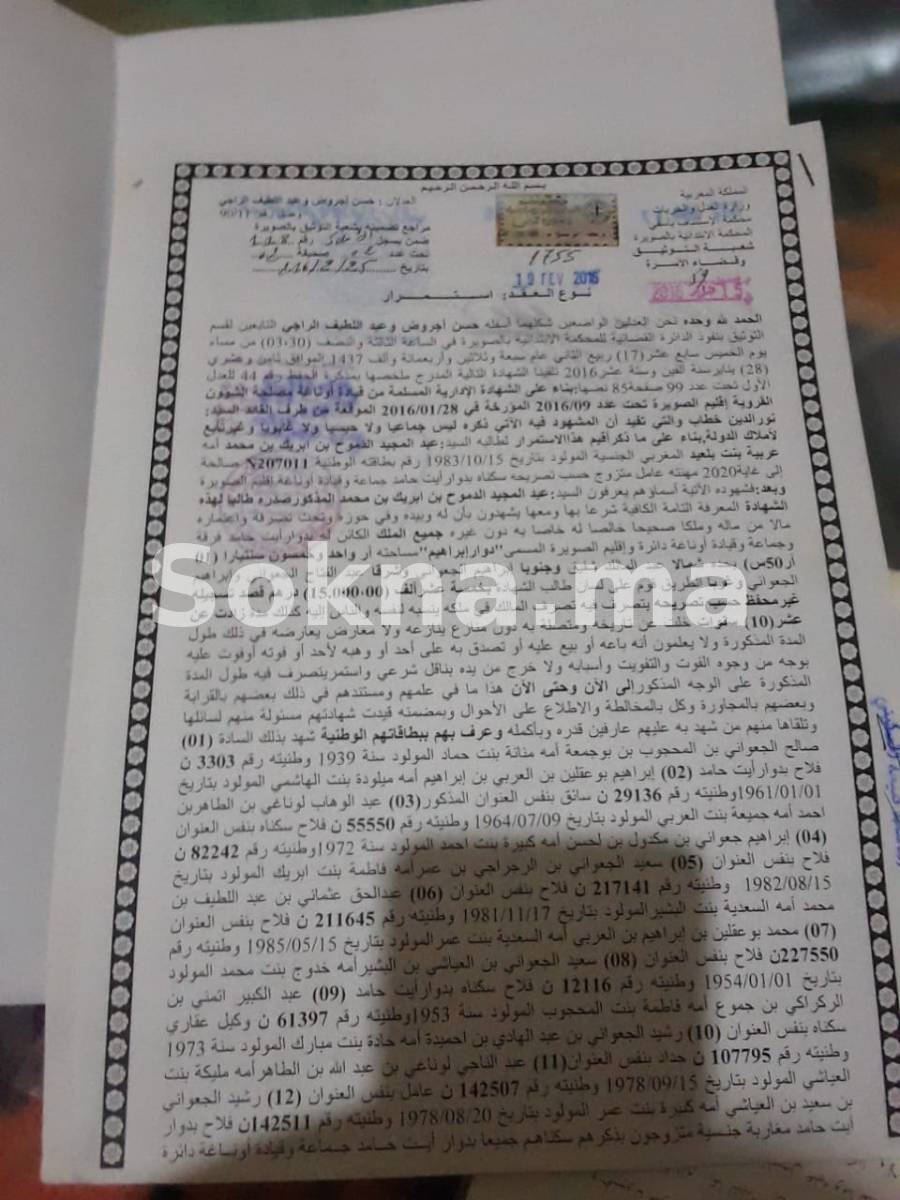 بسم الله الرحمن الرحيم
المملكة المغربية
وزارة العدل والحريات
محكمة الاستئناف بآسفي
المحكمة الابتدائية بالصويرة
شعبة التوثيق
وقضاء الأسرة
العدلان : حسن أجروض وعبد اللطيف الراجي
مراجع تضمينه بشعبة التوثيق بالصويرة
ضمن بسجل رقم
تحت عدد صحيفة
بتاريخ
1755
19 FEV 2016
نوع العقد: استمرار
الحمد لله وحده نحن العدلين الواضعين شكلهما أسفله حسن أجروض وعبد اللطيف الراجي التابعين لقسم
التوثيق بنفوذ الدائرة القضائية للمحكمة الابتدائية بالصويرة في الساعة الثالثة والنصف (03:30) من مساء
يوم الخميس سابع عشر(17) ربيع الثاني عام سبعة وثلاثين وأربعمائة وألف 1437 الموافق ثامن وعشري
(28) يناير سنة ألفين وستة عشر2016 تلقينا الشهادة التالية المدرج ملخصها بمذكرة الحفظ رقم 44 للعدل
الأول تحت عدد 99 صفحة85 نصها:بناء على الشهادة الإدارية المسلمة من قيادة أوناغة مصلحة الشؤون
القروية إقليم الصويرة تحت عدد 2016/09 المؤرخة في 2016/01/28 الموقعة من طرف القائد السيد:
نورالدين خطاب والتي تفيد أن المشهود فيه الآتي ذكره ليس جماعيا ولا حبسيا ولا غابويا وغيرتابع
لأملاك الدولة.بناء على ما ذكرأقيم هذاالاستمرار لطالبه السيد:عبد المجيد الدموح بن ابريك بن محمد أمه
عربية بنت بلعيد المغربي الجنسية المولود بتاريخ 1983/10/15 رقم بطاقته الوطنية N207011 صالحة
إلى غاية2020 مهنته عامل متزوج حسب تصريحه سكناه بدوارأيت حامد جماعة وقيادة أوناغة إقليم الصويرة
وبعد:فشهوده الآتية أسماؤهم يعرفون السيد:عبد المجيد الدموح بن ابريك بن محمد المذكورصدره طالبا لهذه
الشهادة المعرفة التامة الكافية شرعا بها ومعها يشهدون بأن له وبيده وفي حوزه وتحت تصرفه واعتماره
مالا من ماله وملكا صحيحا خالصا له خاصا به دون غيره جميع الملك الكائن بدوارأيت حامد فرقة
وجماعة وقيادة أوناغة دائرة وإقليم الصويرة المسمى"دوار إبراهيم"مساحته أر واحد وخمسون سنتيارا (01
أر50س) شمالا عبد وجنوبا إبراهيم الجعواني وشرقا عبد الفتاح الجعواني وإبراهيم
الجعواني وغربا الطريق طالب الشهادة بخمسة عشرألف (15.000.00) درهم قصد
غيرمحفظ حسب تصريحه يتصرف فيه تصرف المالك في ملكه ينسبه لنفسه والناس إليه كذلك مدة زادت عن
عشر(10) سنوات ومتصلة به دون منازع ينازعه ولا معارض يعارضه في ذلك طول
المدة المذكورة ولا يعلمون أنه باعه أو بيع عليه أو تصدق به على أحد أو وهبه لأحد أو فوته أوفوت عليه
بوجه من وجوه الفوت والتفويت وأسبابه ولا خرج من يده بناقل شرعي واستمريتصرف فيه طول المدة
المذكورة على الوجه المذكورإلى الآن وحتى الآن هذا ما في علمهم ومستندهم في ذلك بعضهم بالقرابة
وبعضهم بالمجاورة وكل بالمخالطة والاطلاع على الأحوال وبمضمنه قيدت شهادتهم مسئولة منهم لسائلها
وتلقاها منهم من شهد به عليهم عارفين قدره وبأكمله وعرف بهم ببطاقاتهم الوطنية شهد بذلك السادة (01)
صالح الجعواني بن المحجوب بن بوجمعة أمه منانة بنت حماد المولود سنة 1939 وطنيته رقم 3303 ن
فلاح بدوارأيت حامد (02) إبراهيم بوعقلين بن العربي بن إبراهيم أمه ميلودة بنت الهاشمي المولود بتاريخ
1961/01/01وطنيته رقم 29136 ن سائق بنفس العنوان المذكور(03) عبد الوهاب لوناغي بن الطاهربن
احمد أمه جميعة بنت العربي المولود بتاريخ 1964/07/09 وطنيته رقم 55550 ن فلاح سكناه بنفس العنوان
(04) إبراهيم جعواني بن مكدول بن لحسن أمه كبيرة بنت احمد المولود سنة 1972وطنيته رقم 82242 ن
فلاح بنفس العنوان (05) سعيد الجعواني بن الرجراجي بن عمرأمه فاطمة بنت ابريك المولود بتاريخ
1982/08/15 وطنيته رقم 217141 ن فلاح بنفس العنوان (06) عبدالحق عثماني بن عبد اللطيف بن
محمد أمه السعدية بنت البشيرالمولود بتاريخ 1981/11/17 وطنيته رقم 211645 ن فلاح بنفس العنوان
(07) محمد بوعقلين بن إبراهيم بن العربي أمه السعدية بنت عمرالمولود بتاريخ 1985/05/15 وطنيته رقم
227550ن فلاح بنفس العنوان (08) سعيد الجعواني بن العياشي بن البشيرأمه خدوج بنت محمد المولود
بتاريخ 1954/01/01 وطنيته رقم 12116 ن فلاح سكناه بدوارأيت حامد (09) عبد الكبير اتمني بن
الركراكي بن جموع أمه فاطمة بنت المحجوب المولود سنة 1953وطنيته رقم 61397 ن وكيل عقاري
سكناه بنفس العنوان (10) رشيد الجعواني بن عبد الهادي بن احميدة أمه حادة بنت مبارك المولود سنة 1973
وطنيته رقم 107795 ن حداد بنفس العنوان(11) عبد الناجي لوناغي بن عبد الله بن الطاهرأمه مليكة بنت
العياشي المولود بتاريخ 1978/09/15 وطنيته رقم 142507 ن عامل بنفس العنوان (12) رشيد الجعواني
بن سعيد بن العياشي أمه كبيرة بنت عمر المولود بتاريخ 1978/08/20 وطنيته رقم 142511ن فلاح بدوار
أيت حامد مغاربة جنسية متزوجون بذكرهم سكناهم جميعا بدوار أيت حامد جماعة وقيادة أوناغة دائرة
Sokna.ma